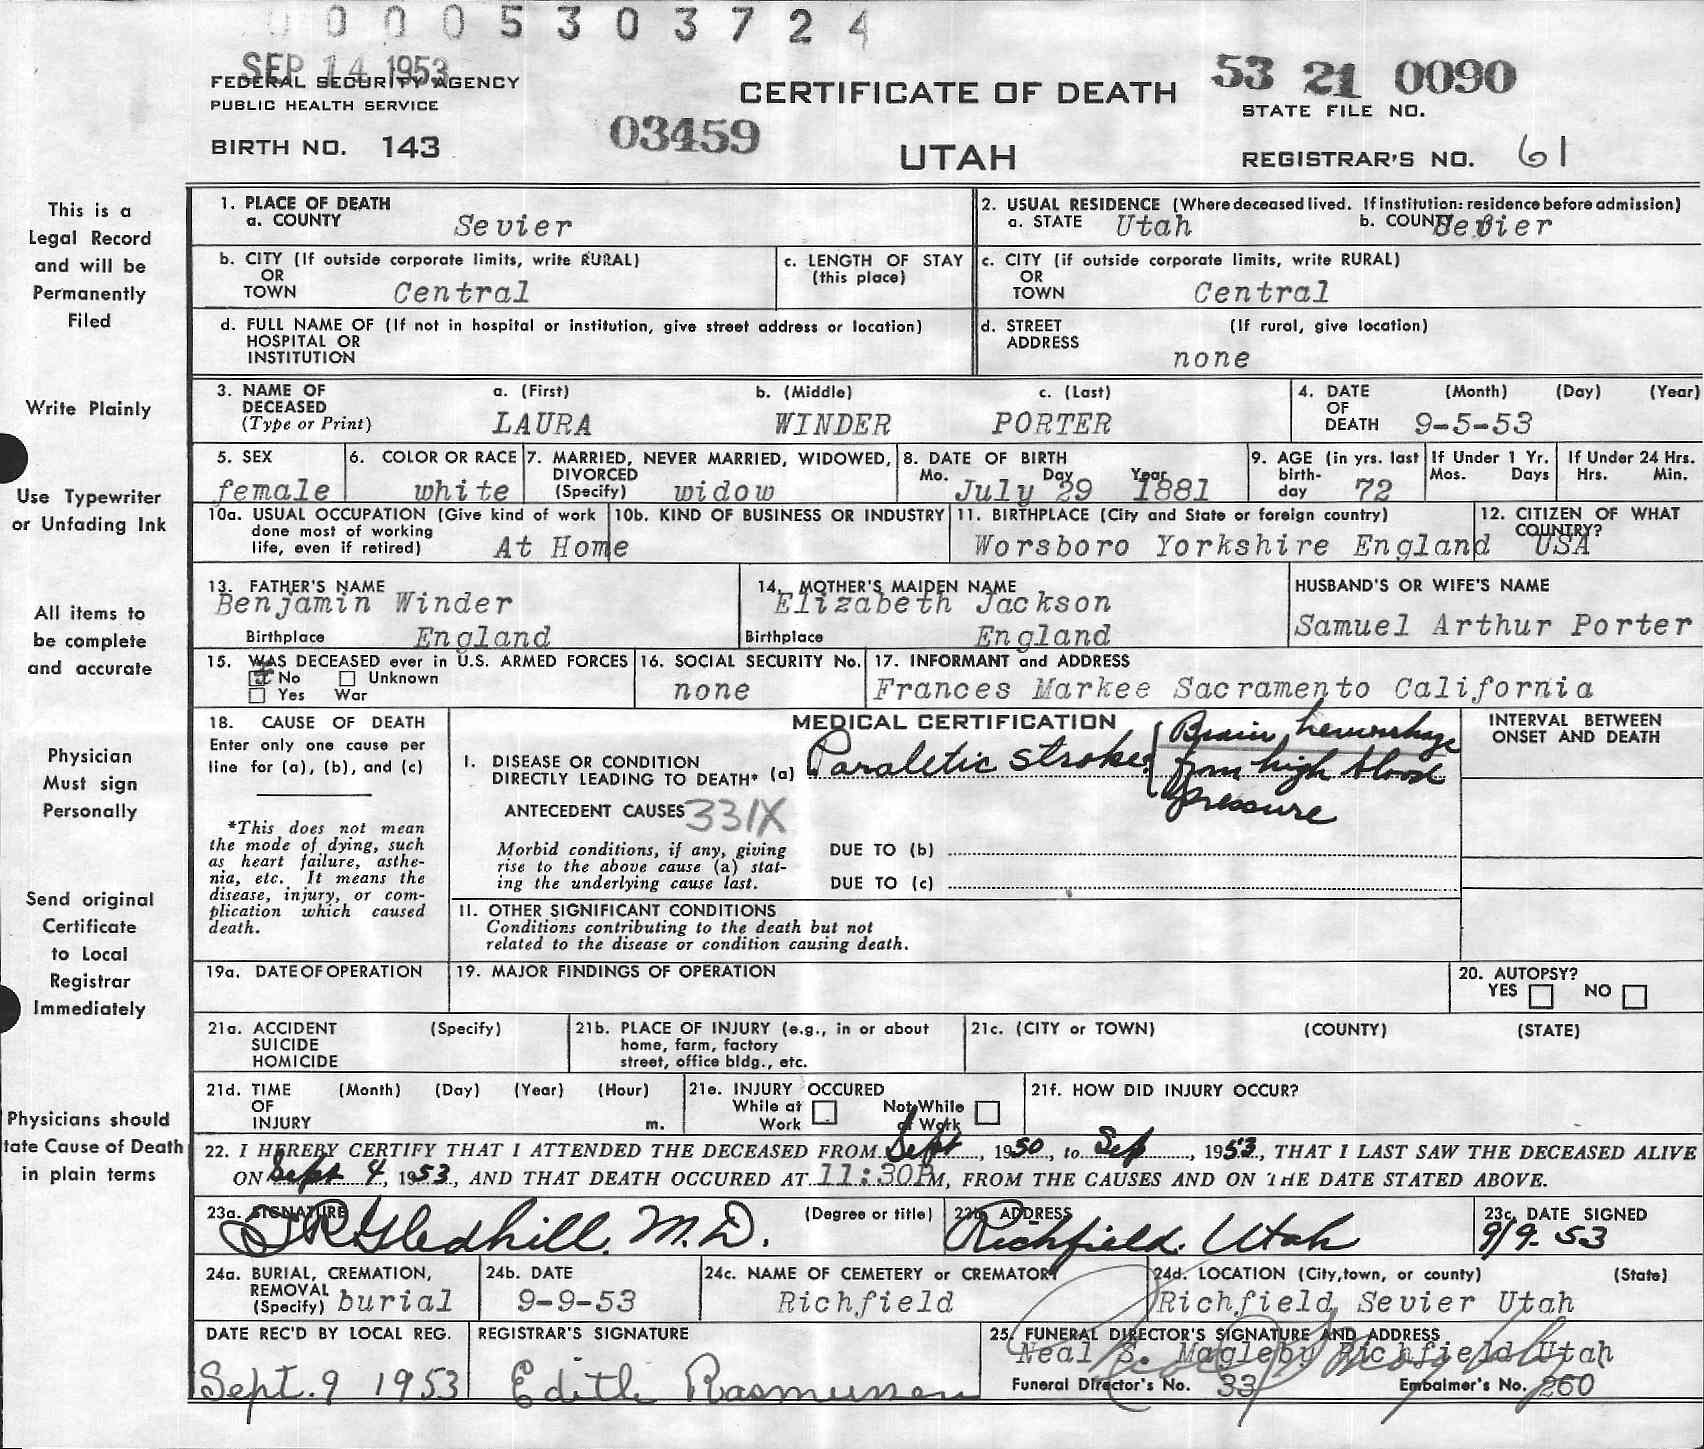 0 0 0 0 5 3 0 3 7 2 4
SEP 14 1953
FEDERAL SECURITY AGENCY
PUBLIC HEALTH SERVICE
BIRTH NO. 143
03459
CERTIFICATE OF DEATH
UTAH
53 21 0090
STATE FILE NO.
REGISTRAR'S NO. 61
This is a
Legal Record
and will be
Permanently
Filed
Write Plainly
Use Typewriter
or Unfading Ink
All items to
be complete
and accurate
Physician
Must sign
Personally
Send original
Certificate
to Local
Registrar
Immediately
Physicians should
tate Cause of Death
in plain terms
1. PLACE OF DEATH
a. COUNTY Sevier
2. USUAL RESIDENCE (Where deceased lived. If institution: residence before admission)
a. STATE Utah b. COUN Sevier
b. CITY (If outside corporate limits, write RURAL)
OR
TOWN Central
c. LENGTH OF STAY
(this place)
c. CITY (if outside corporate limits, write RURAL)
OR
TOWN Central
d. FULL NAME OF (If not in hospital or institution, give street address or location)
HOSPITAL OR
INSTITUTION
d. STREET (If rural, give location)
ADDRESS
none
3. NAME OF DECEASED
(Type or Print)
a. (First) b. (Middle) c. (Last)
LAURA WINDER PORTER
4. DATE (Month) (Day) (Year)
OF
DEATH 9-5-53
5. SEX
female
6. COLOR OR RACE
white
7. MARRIED, NEVER MARRIED, WIDOWED,
DIVORCED
(Specify) widow
8. DATE OF BIRTH
Mo. Day Year
July 29 1881
9. AGE (in yrs. last
birth-
day 72
If Under 1 Yr.
Mos. Days
If Under 24 Hrs.
Hrs. Min.
10a. USUAL OCCUPATION (Give kind of work
done most of working
life, even if retired) At Home
10b. KIND OF BUSINESS OR INDUSTRY
11. BIRTHPLACE (City and State or foreign country)
Worsboro Yorkshire England
12. CITIZEN OF WHAT
COUNTRY?
USA
13. FATHER'S NAME
Benjamin Winder
Birthplace England
14. MOTHER'S MAIDEN NAME
Elizabeth Jackson
Birthplace England
HUSBAND'S OR WIFE'S NAME
Samuel Arthur Porter
15. WAS DECEASED ever in U.S. ARMED FORCES
x No Unknown
Yes War
16. SOCIAL SECURITY No.
none
17. INFORMANT and ADDRESS
Frances Markee Sacramento California
18. CAUSE OF DEATH
Enter only one cause per
line for (a), (b), and (c)
*This does not mean
the mode of dying, such
as heart failure, asthe-
nia, etc. It means the
disease, injury, or com-
plication which caused
death.
MEDICAL CERTIFICATION
I. DISEASE OR CONDITION
DIRECTLY LEADING TO DEATH* (a) Paraletic stroke
Brain hemorrhage
from high blood
pressure
ANTECEDENT CAUSES 331X
Morbid conditions, if any, giving
rise to the above cause (a) stat-
ing the underlying cause last.
DUE TO (b)
DUE TO (c)
II. OTHER SIGNIFICANT CONDITIONS
Conditions contributing to the death but not
related to the disease or condition causing death.
INTERVAL BETWEEN
ONSET AND DEATH
19a. DATE OF OPERATION
19. MAJOR FINDINGS OF OPERATION
20. AUTOPSY?
YES NO
21a. ACCIDENT (Specify)
SUICIDE
HOMICIDE
21b. PLACE OF INJURY (e.g., in or about
home, farm, factory
street, office bldg., etc.
21c. (CITY or TOWN) (COUNTY) (STATE)
21d. TIME (Month) (Day) (Year) (Hour)
OF
INJURY m.
21e. INJURY OCCURED
While at Not While
Work at Work
21f. HOW DID INJURY OCCUR?
22. I HEREBY CERTIFY THAT I ATTENDED THE DECEASED FROM Sept, 1950, to Sep, 1953, THAT I LAST SAW THE DECEASED ALIVE
ON Sept 4, 1953, AND THAT DEATH OCCURED AT 11:30P M, FROM THE CAUSES AND ON THE DATE STATED ABOVE.
23a. SIGNATURE (Degree or title)
Gledhill, M.D.
23b. ADDRESS
Richfield, Utah
23c. DATE SIGNED
9/9-53
24a. BURIAL, CREMATION,
REMOVAL
(Specify) burial
24b. DATE
9-9-53
24c. NAME OF CEMETERY or CREMATORY
Richfield
24d. LOCATION (City, town, or county) (State)
Richfield Sevier Utah
DATE REC'D BY LOCAL REG.
Sept. 9 1953
REGISTRAR'S SIGNATURE
Edith Rasmussen
25. FUNERAL DIRECTOR'S SIGNATURE AND ADDRESS
Neal S. Magleby Richfield Utah
Funeral Director's No. 33 Embalmer's No. 260